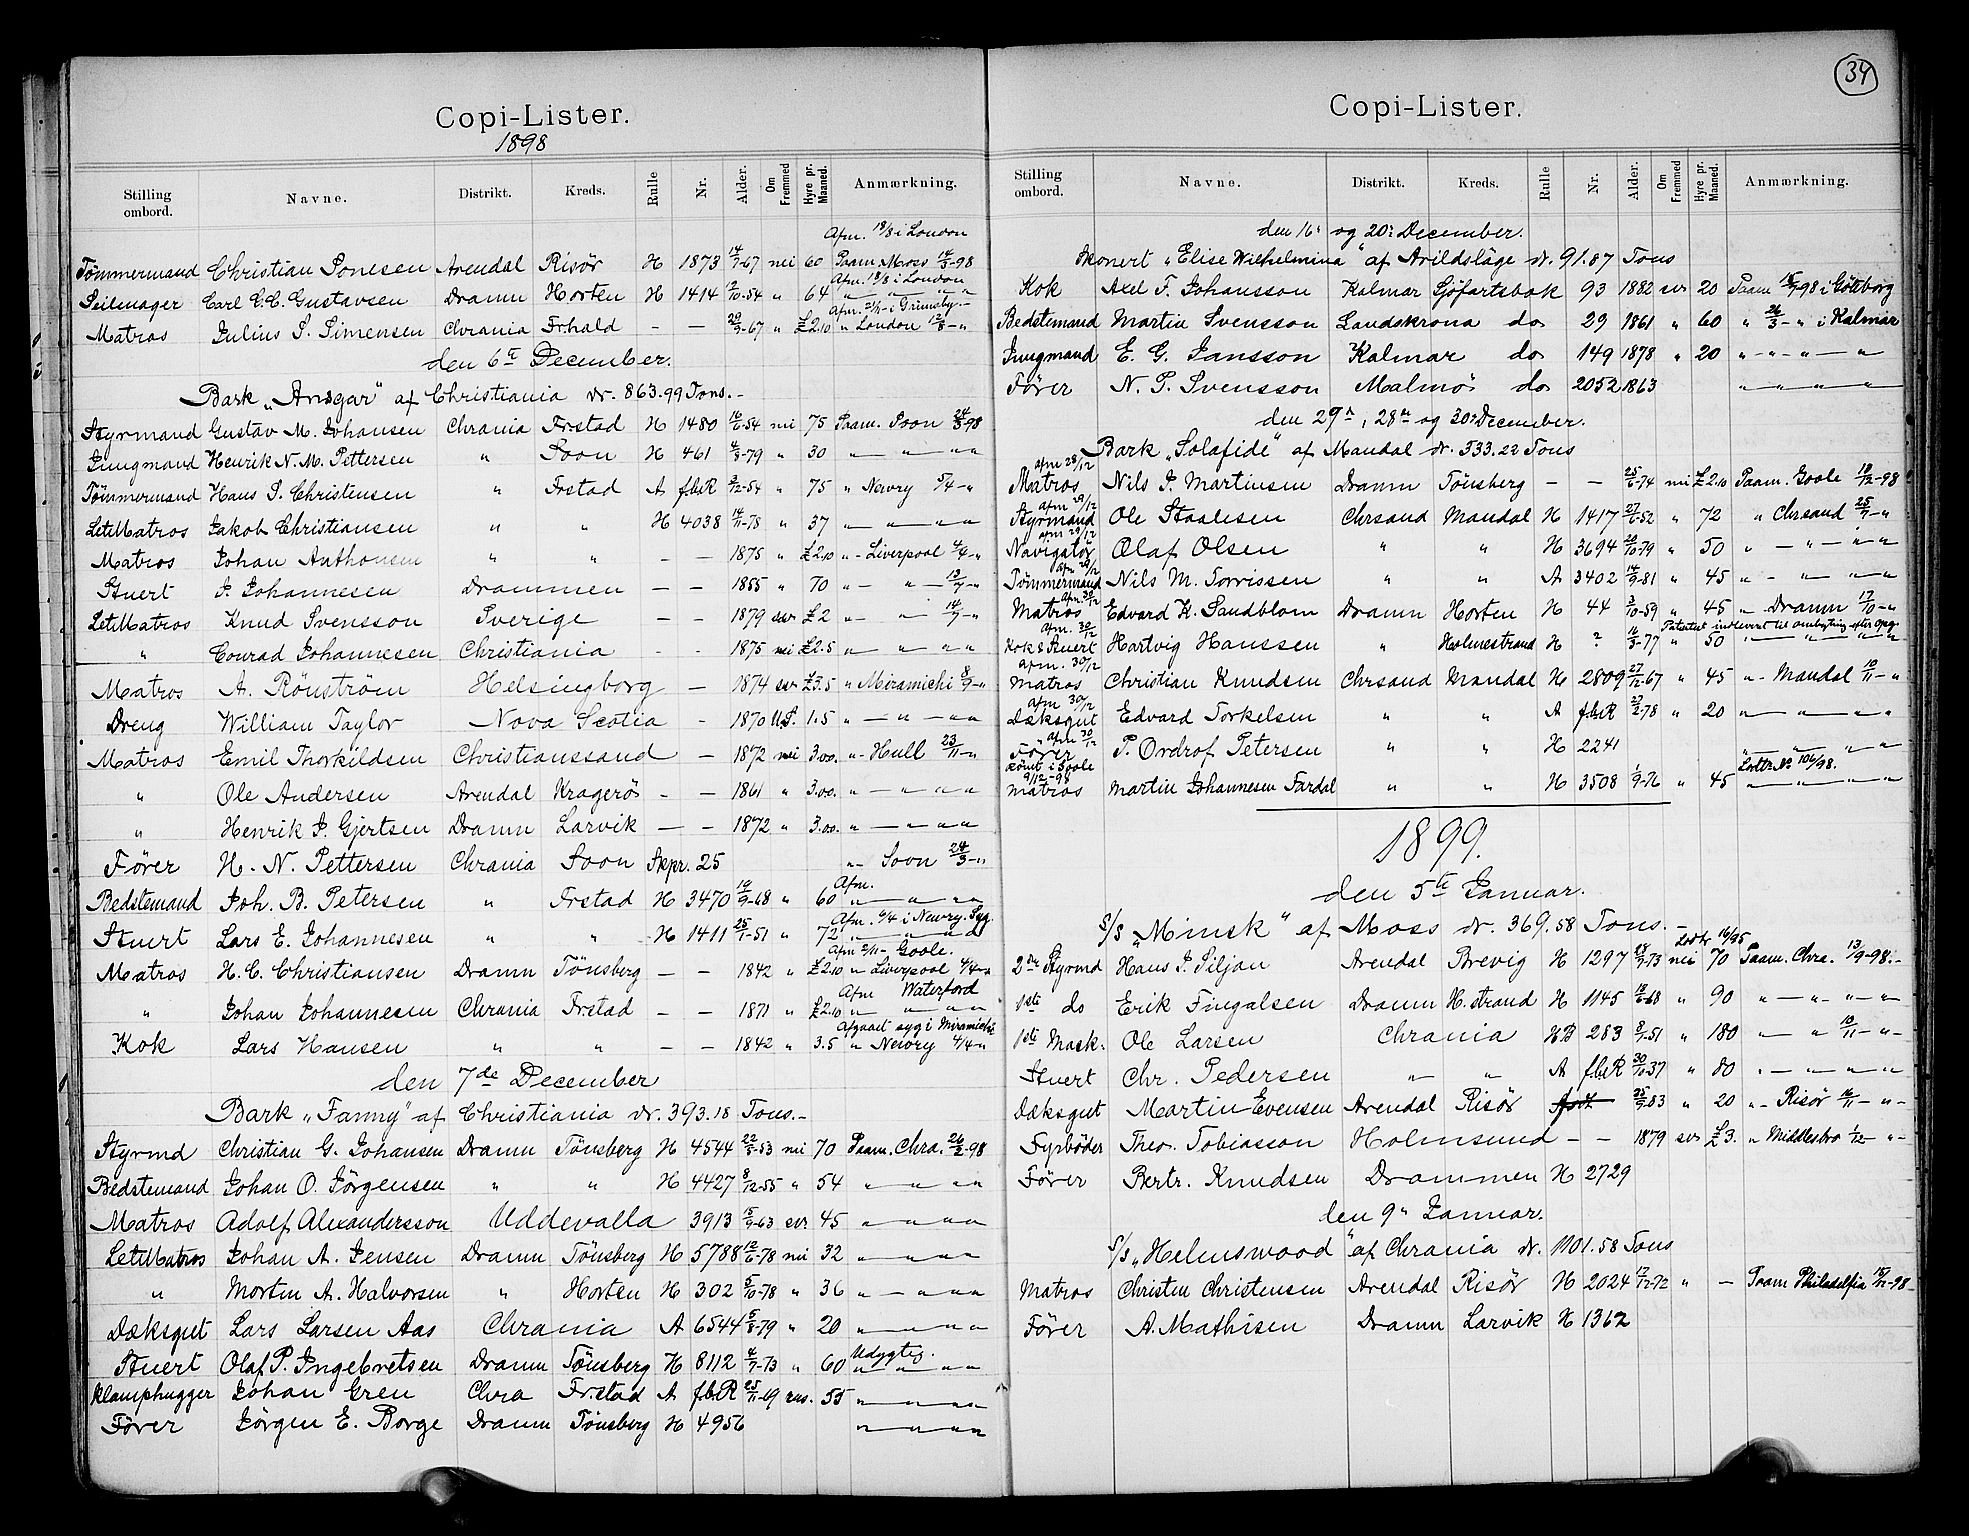 Copi-Lister.
1898
Stilling ombord. Navne. Distrikt. Kreds. Rulle Nr. Alder. Om Fremmed Hyre pr. Maaned. Anmærkning.
Afm. 18/8 i London
Tømmermand Christian Jonesen Arendal Risör H 1873 14/7-67 nei 60 Paam. Moss 14/3-98
Afm. 18/8 i London
Seilmager Carl C. C. Gustavsen Dramn Horten H 1414 2/10-54 " 64 " — " — "
Afm. 21/11 i Grimsby.-
Matros Julius S. Simensen Chrania Frhald — — 20/9-67 " £2.10 " London 12/8-"
den 6te December.
Bark „Ansgar" af Christiania dr. 863.99 Tons.-
Styrmand Gustav M. Johansen Chrania Frstad H 1480 16/6-54 nei 75 Paam. Soon 24/3-98
Jungmand Henrik N. M. Pettersen " Soon H 461 4/3-79 " 30 " — " — " "
Tømmermand Hans S. Christensen " Frstad A f.b.R 9/12-54 " 75 " Newry 5/4-"
LetMatros Jakob Christiansen " " H 4038 14/11-78 " 37 " — " — " "
Matros Johan Anthonsen " " — — 1875 " £2.10 "- Liverpool 4/4-"
Stuert J. Johannesen Drammen — — 1855 " 70 "- " — 13/7-"
LetMatros Knud Svensson Sverige — — 1879 svr £2 "- " - 14/7-"
" Conrad Johannesen Christiania — — 1875 nei £2.5 " — " — " "
Matros A. Rönström Helsingborg — 1874 svr £3.5 " Miramichi 8/9-"
Dreng William Taylor Nova Scotia - 1870 U.S. 1.5 " — " — " "
Matros Emil Thorkildsen Christianssand — 1872 nei 3.00. "- Hull 23/11-"
" Ole Andersen Arendal Kragerö - — 1861 " 3.00. " — " " "
" Henrik J. Gjertsen Dramn Larvik — — 1872 " 3.00. " — " " "
Fører H. N. Pettersen Chrania Soon Skpr. 25 "- Soon 24/3-"
Afm.
Bedstemand Joh. B. Petersen " Frstad H 3470 19/9-68 " 60 " — " — "
Afm. 6/4 i Newry. Syg.
Stuert Lars E. Johannesen " " H 1411 25/1-51 " 72 " — " " "
Afm 2/11- Goole.
Matros H. C. Christiansen Dramn Tönsberg — — 1842 " £2.10 " Liverpool 4/4-"
Afm Waterford
" Johan Johannesen Chrania Frstad — — 1871 " £2.10 " — " " "
Afgaaet syg i Miramichi
Kok Lars Hansen " " — — 1842 " 3.5 " Newry 4/4-"
den 7de December
Bark „Fanny" af Christiania dr. 393.18 Tons.-
Styrmd Christian G. Johansen Dramn Tönsberg H 4544 22/5-53 nei 70 Paam. Chra. 26/2-98
Bedstemand Johan O. Jörgensen " " H 4427 8/12-55 " 54 " — " " "
Matros Adolf Alexandersson Uddevalla 3913 15/9-63 svr 45 " — " " "
LetMatros Johan A. Jensen Dramn Tönsberg H 5788 12/6-78 nei 32 " — " " "
" Morten A. Halvorsen " Horten H 302 5/10-78 " 36 " — " " "
Dæksgut Lars Larsen Aas Chrania A 6544 5/8-79 " 20 " — " " "
Udygtig.
Stuert Olaf P. Ingebretsen Dramn Tönsberg H 8112 4/7-73 " 60 " " " "
Klamphugger Johan Gren Chra Fr.stad A f.b.R 25/11-69 rus. 55 " — " " "
Fører Jörgen E. Borge Dramn Tönsberg H 4956 " — " " "
34
Copi-Lister.
Stilling ombord. Navne. Distrikt. Kreds. Rulle Nr. Alder. Om Fremmed Hyre pr. Maaned. Anmærkning.
den 16n og 20n December.
Skonert „Elise Wilhelmina" af Arildsläge dr. 91.87 Tons
Kok Axel F. Johansson Kalmar Sjöfartsbok 93 1882 svr 20 Paam 15/7 98 i Göteborg
Bedstemand Martin Svensson Landskrona do 29 1861 " 60 " 26/3-" i Kalmar
Jungmand E. G. Jansson Kalmar do 149 1878 " 20 " - " - " — "
Fører N. P. Svensson Malmö do 2052 1863 " — " " "
den 29n, 28n og 30n December.
Bark „Solafide" af Mandal dr. 533.22 Tons
afm 28/12
Matros Nils J. Martinsen Dramn Tönsberg - — 25/6-74 nei £2.10 Paam. Goole 10/12-98
afm 29/12
Styrmand Ole Staalesen Chrsand Mandal H 1417 27/6-52 " 72 " Chrsand 25/7-"
afm 29/12
Navigatör Olaf Olsen " " H 3694 20/10-79 " 50 " - " - " "
afm 29/12
Tømmermand Nils M. Torrissen " " A 3402 14/9-81 " 45 " - " " "
afm. 30/12
Matros Edvard K. Sandblom Dramn Horten H 44 3/10-59 " 45 "- Dramn 17/10-"
afm. 30/12 Patentet indleveret til ombytning efter opg.
Kok & Stuert Hartvig Hanssen " Holmestrand H ? 11/3-77 " 50 " — " " "
afm. 30/12
Matros Christian Knudsen Chrsand Mandal H 2809 27/12-67 " 45 "- Mandal 10/11-"
afm 30/12
Dæksgut Edvard Torkelsen " " A f.b.R 22/2-78 " 20 " — " " "
afm 30/12
Fører P. Ordrof Petersen " " H 2241 " — " " "
römt i Goole 9/12-98 Lodtr. No 106/98.
Matros Martin Johannesen Fardal " " H 3508 1/9-76 " 45 " — " " "
1899.
den 5te Januar.
S/S „Minsk" af Moss dr. 369.58 Tons.-
Lodtr 16/95
2den Styrmd Hans J. Siljan Arendal Brevig H 1297 28/9-73 nei 70 Paam. Chra. 13/9-98.-
1ste do Erik Fingalsen Dramn H.strand H 1145 18/6-68 " 90 " — " - " — "
1ste Mask. Ole Larsen Chrania HB 283 8/1-51 " 180 " — " 13/11-"-
Stuert Chr. Pedersen " " A f.b.R 30/10-37 " 80 " — " " "
Dæksgut Martin Evensen Arendal Risör 25/9-83 " 20 "- Risör 16/11-"-
Fyrböder Theo. Tobiasson Holmsund - - 1879 svr £3. " Middlesbro 1/12-"-
Fører Bertr. Knudsen Drammen H 2729
den 9n Januar.
S/S „Helenswood" af Chrania dr. 1101.58 Tons
Matros Christen Christensen Arendal Risör H 2024 17/12-72 " — Paam Philadelfia 15/12-98-
Fører A. Mathisen Dramn Larvik H 1362